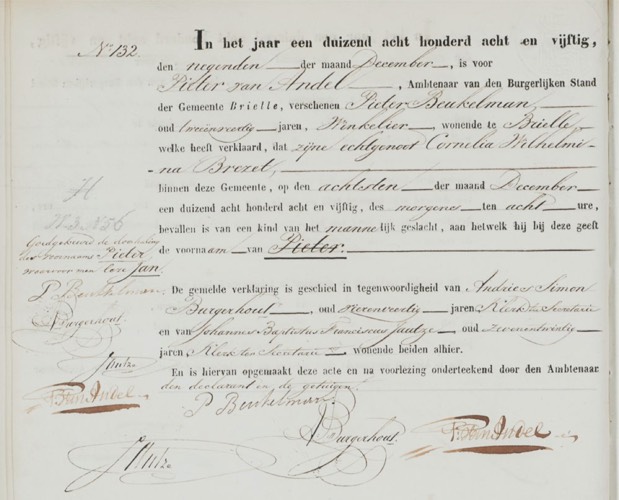 No 132.
In het jaar een duizend acht honderd acht en vijftig,
den negenden der maand December, is voor
Pieter van Andel, Ambtenaar van den Burgerlijken Stand
der Gemeente Brielle, verschenen Pieter Beukelman,
oud tweeenveertig jaren, Winkelier, wonende te Brielle,
welke heeft verklaard, dat zijne echtgenoot Cornelia Wilhelmi-
-na Brezet,
binnen deze Gemeente, op den achtsten der maand December
een duizend acht honderd acht en vijftig, des morgens ten acht ure,
bevallen is van een kind van het mannelijk geslacht, aan hetwelk hij bij deze geeft
de voornaam van Pieter.
De gemelde verklaring is geschied in tegenwoordigheid van Andries Simon
Burgerhout, oud jaren, Klerk ter Secretarie
en van Johannes Baptistus Franciscus Jautze, oud zevenentwintig
jaren, Klerk ter Secretarie, wonende beiden alhier.
En is hiervan opgemaakt deze acte en na voorlezing onderteekend door den Ambtenaar
den declarant en de getuigen.
P Beukelman
Burgerhout
P. van Andel
Jautze
H
Goedgekeurd de doorhaling
des voornaams Pieter
waarvoor men leze Jan.
P Beukelman
Burgerhout
Jautze
P. van Andel